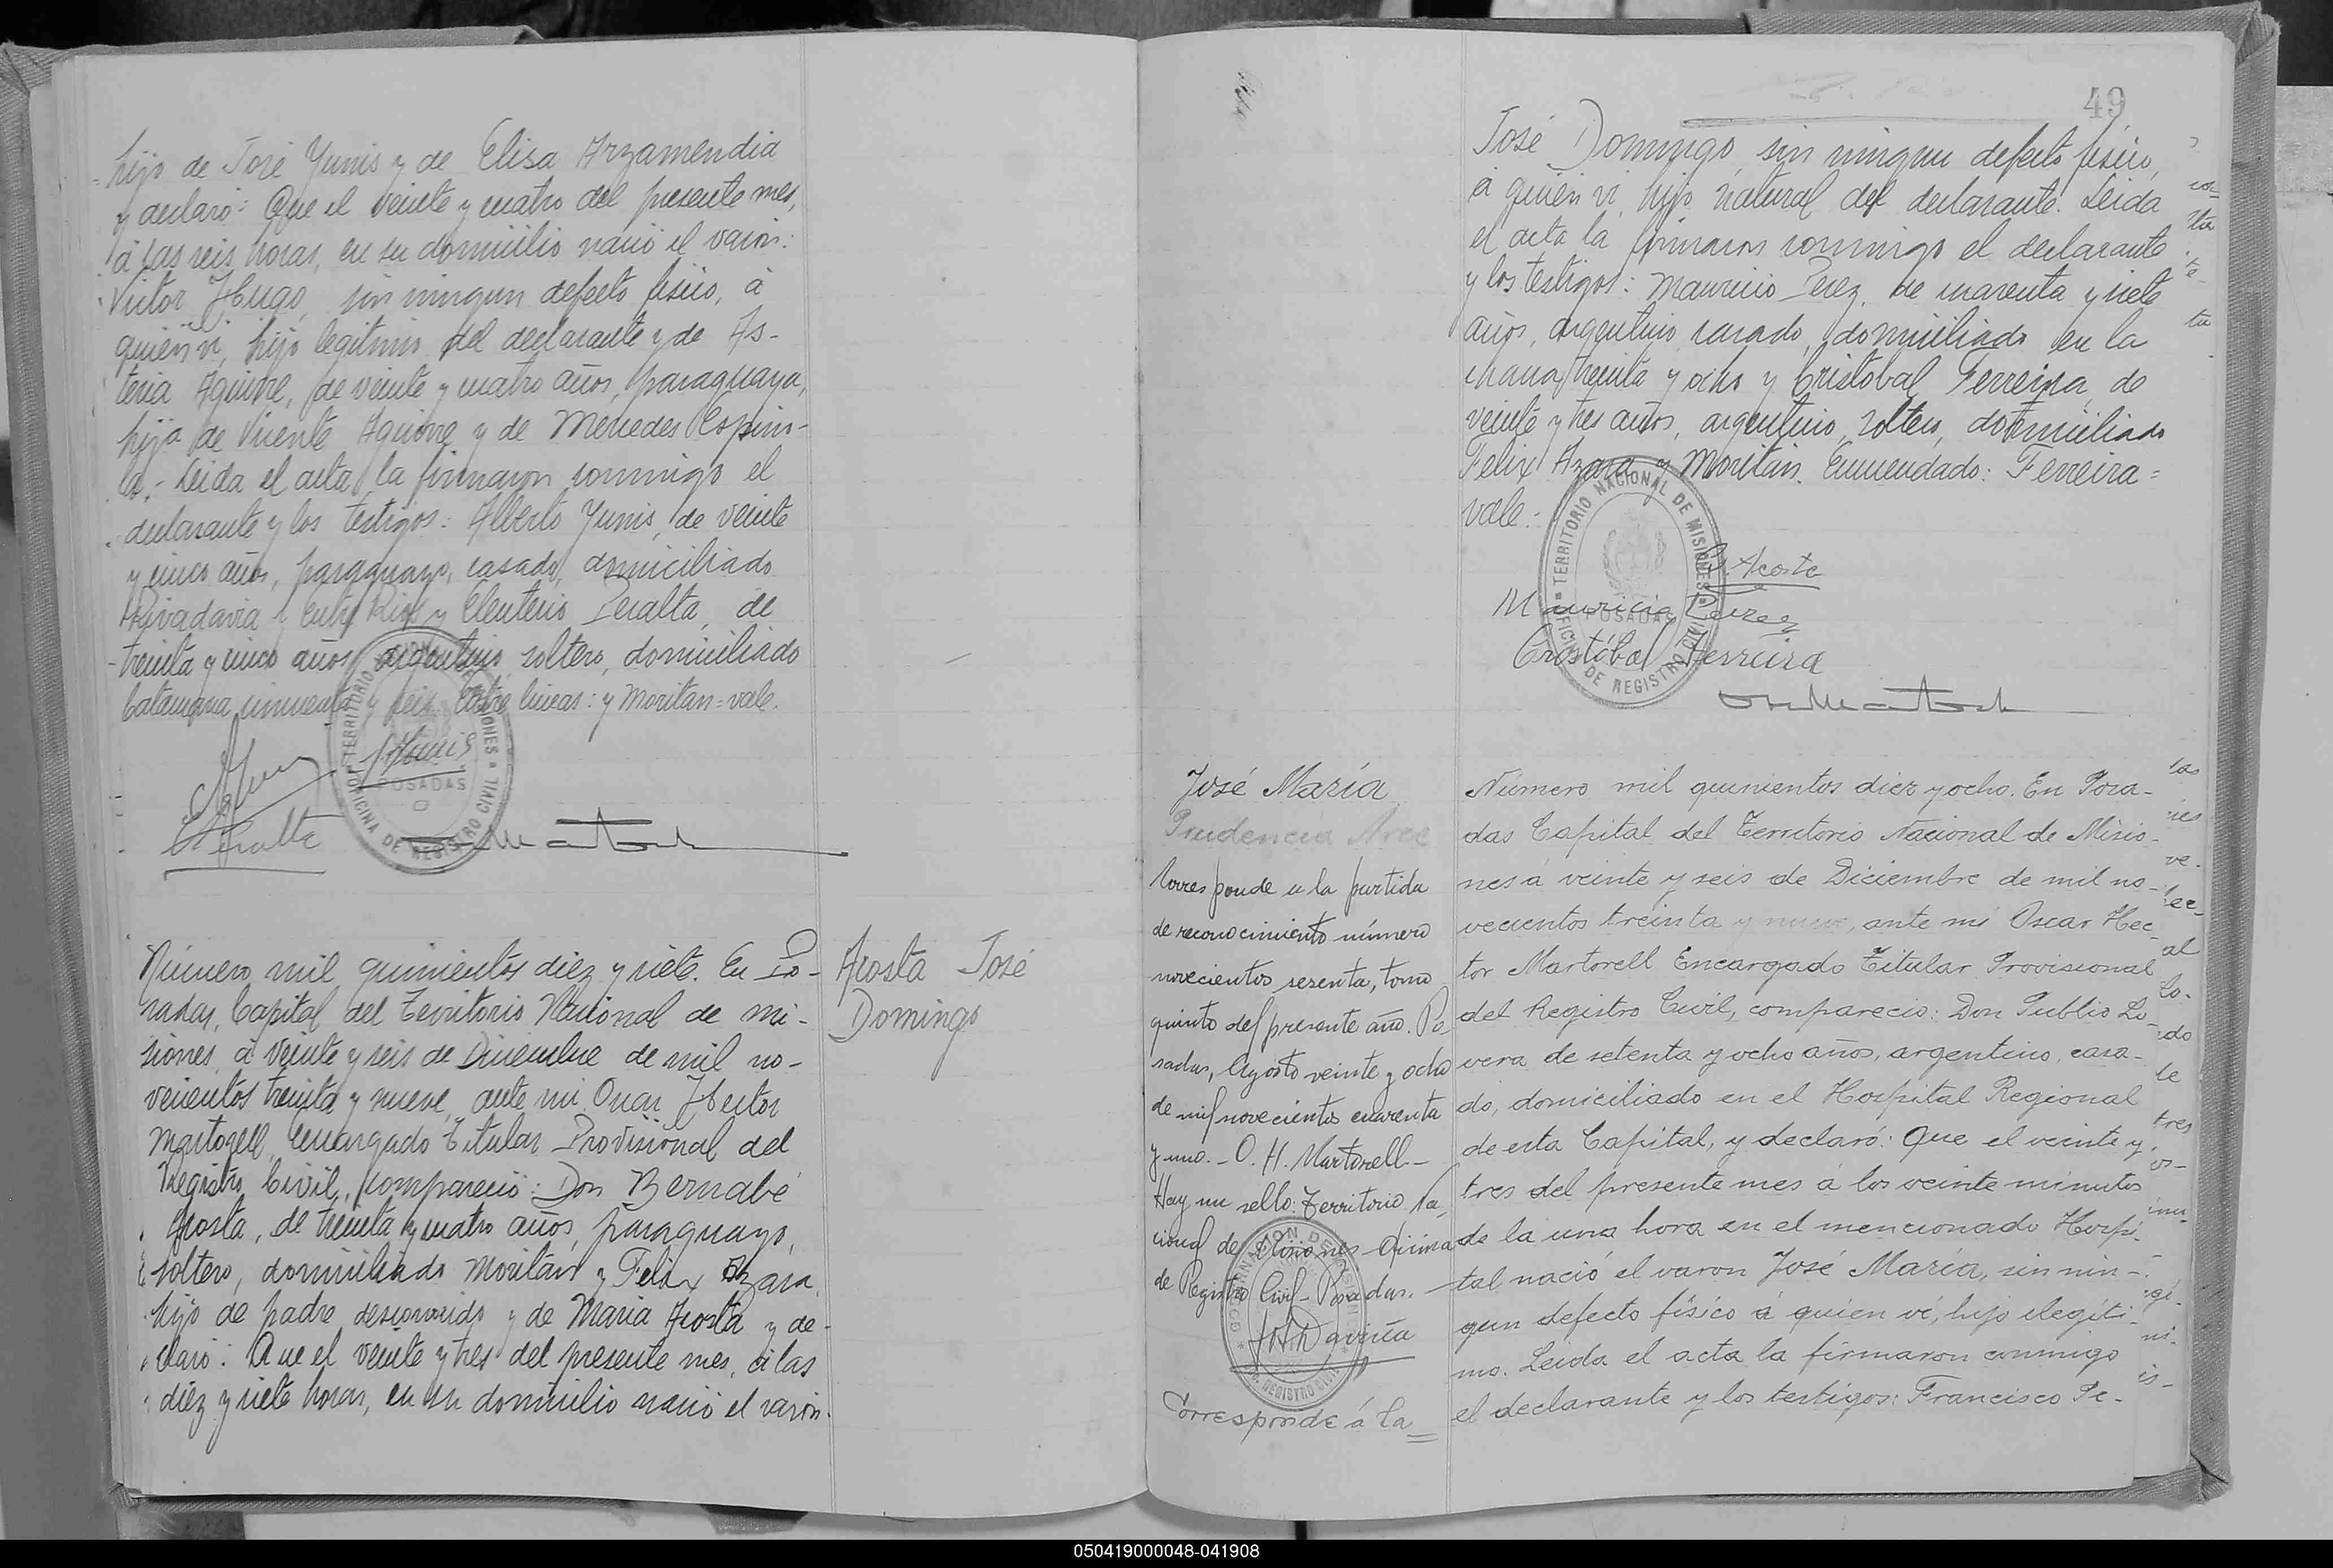 hijo de José Yunis y de Elisa Arzamendia
y declaró: Que el veinte y cuatro del presente mes,
á las seis horas, en su domicilio nació el varon:
Victor Hugo, sin ningun defecto fisico, á
quién vi, hijo legitimo del declarante y de As-
teria Aguirre, de veinte y cuatro años, paraguaya,
hija de Vicente Aguirre y de Mercedes Espino-
la.- Leida el acta la firmaron conmigo el
declarante y los testigos: Alberto Yunis, de veinte
y cinco años, paraguayo, casado, domiciliado
Rivadavia y Entre Rios y Eleuterio Peralta, de
treinta y cinco años, argentino, soltero, domiciliado
Catamarca cincuenta y seis. Entre lineas: y Moritan=vale.
TERRITORIO NACIONAL DE MISIONES
POSADAS
OFICINA DE REGISTRO CIVIL
E Peralta
Número mil quinientos diez y siete. En Po-
sadas, Capital del Territorio Nacional de Mi-
siones, á veinte y seis de Diciembre de mil no-
vecientos treinta y nueve, ante mi Oscar Hector
Martorell, Encargado Titular Provisional del
Registro Civil, compareció: Don Bernabé
Acosta, de treinta y cuatro años, paraguayo,
soltero, domiciliado Moritán y Felix Azara,
hijo de padre desconocido y de Maria Acosta y de-
claró: Que el veinte y tres del presente mes, á las
diez y siete horas, en su domicilio nació el varón:
Acosta José
Domingo
49
José Domingo, sin ningun defecto fisico,
á quién vi, hijo natural del declarante. Leida
el acta la firmaron conmigo el declarante
y los testigos: Mauricio Perez, de cuarenta y siete
años, argentino casado, domiciliado en la
chacra treinta y ocho y Cristobal Ferreira, de
veinte y tres años, argentino, soltero, domiciliado
Felix Azara y Moritán. Enmendado: Ferreira=
vale.-
TERRITORIO NACIONAL DE MISIONES
POSADAS
OFICINA DE REGISTRO CIVIL
B. Acosta
Mauricio Perez
Cristóbal Ferreira
José María
Prudencia Arce
Corresponde a la partida
de reconocimiento número
novecientos sesenta, tomo
quinto del presente año. Po
sadas, Agosto veinte y ocho
de mil novecientos cuarenta
y uno.- O. H. Martorell-
Hay un sello: Territorio Na
cional de Misiones- Oficina
de Registro Civil- Posadas.-
Corresponde á la
Número mil quinientos diez y ocho. En Posa-
das Capital del Territorio Nacional de Misio-
nes á veinte y seis de Diciembre de mil no-
vecientos treinta y nueve, ante mi Oscar Hec-
tor Martorell Encargado Titular Provisional
del Registro Civil, compareció: Don Publio Lo-
vera de setenta y ocho años, argentino, casa-
do, domiciliado en el Hospital Regional
de esta Capital, y declaró: Que el veinte y
tres del presente mes á los veinte minutos
de la una hora en el mencionado Hospi-
tal nació el varon José María, sin nin-
gun defecto físico á quien ví, hijo ilegíti-
mo. Leida el acta la firmaron conmigo
el declarante y los testigos: Francisco Pe-
050419000048-041908